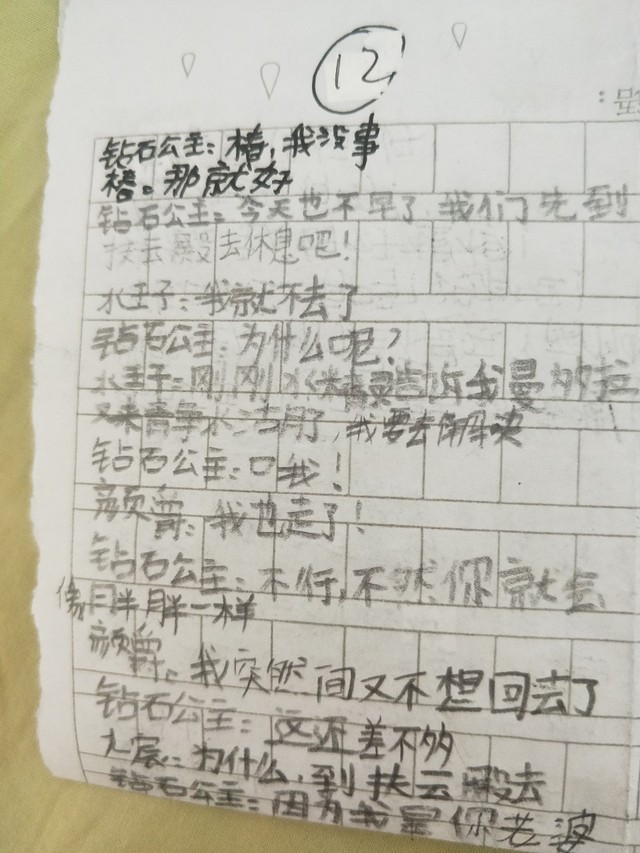 12
钻石公主：椿，我没事
椿。那就好
钻石公主：今天也不早了我们先到
扶云殿去休息吧！
水王子：我就不去了
钻石公主：为什么呢？
水王子：刚刚水 告诉我曼多拉
又来 净水 用了，我要去解决
钻石公主：口我！
颜爵：我也走了！
钻石公主：不行，不然你就会
像胖胖一样
颜爵。我突然间又不想回去了
钻石公主：这还差不多
大家：为什么，到扶云殿去
钻石公主：因为我是你老婆